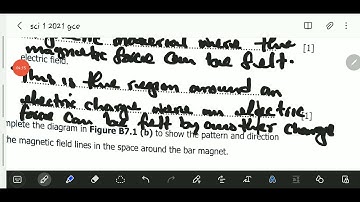 sci 1 2021 gce
magnetic material where the
magnetic force can be felt.
[1]
electric field.
This is the region around an
electric charge where an electric
[1]
force can be felt by another charge
mplete the diagram in Figure B7.1 (b) to show the pattern and direction
he magnetic field lines in the space around the bar magnet.